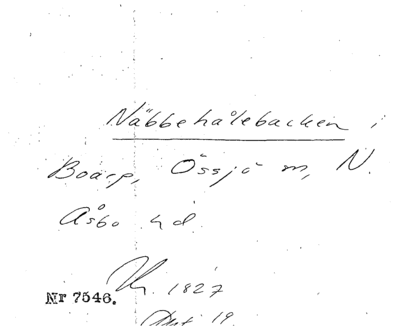 Näbbehålebacken i
Boarp, Össjö sn, N.
Åsbo hd.
1827
Nr 7546.
19